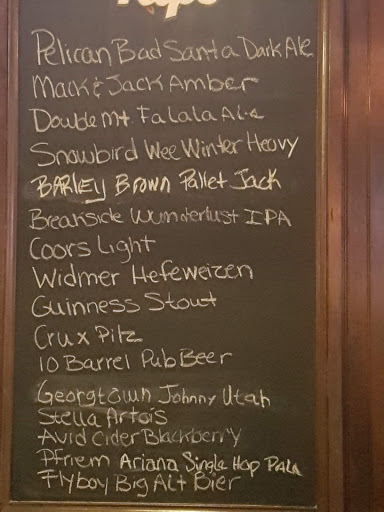 Pelican Bad Santa Dark Ale
Mack & Jack Amber
Double Mt. Falala Ale
Snowbird Wee Winter Heavy
BARLEY Brown Pallet Jack
Breakside Wunderlust IPA
Coors Light
Widmer Hefeweizen
Guinness Stout
Crux Pilz
10 Barrel Pub Beer
Georgtown Johnny Utah
Stella Artois
Avid Cider Blackberry
Pfriem Ariana Single Hop Pale
Flyboy Big Alt Bier